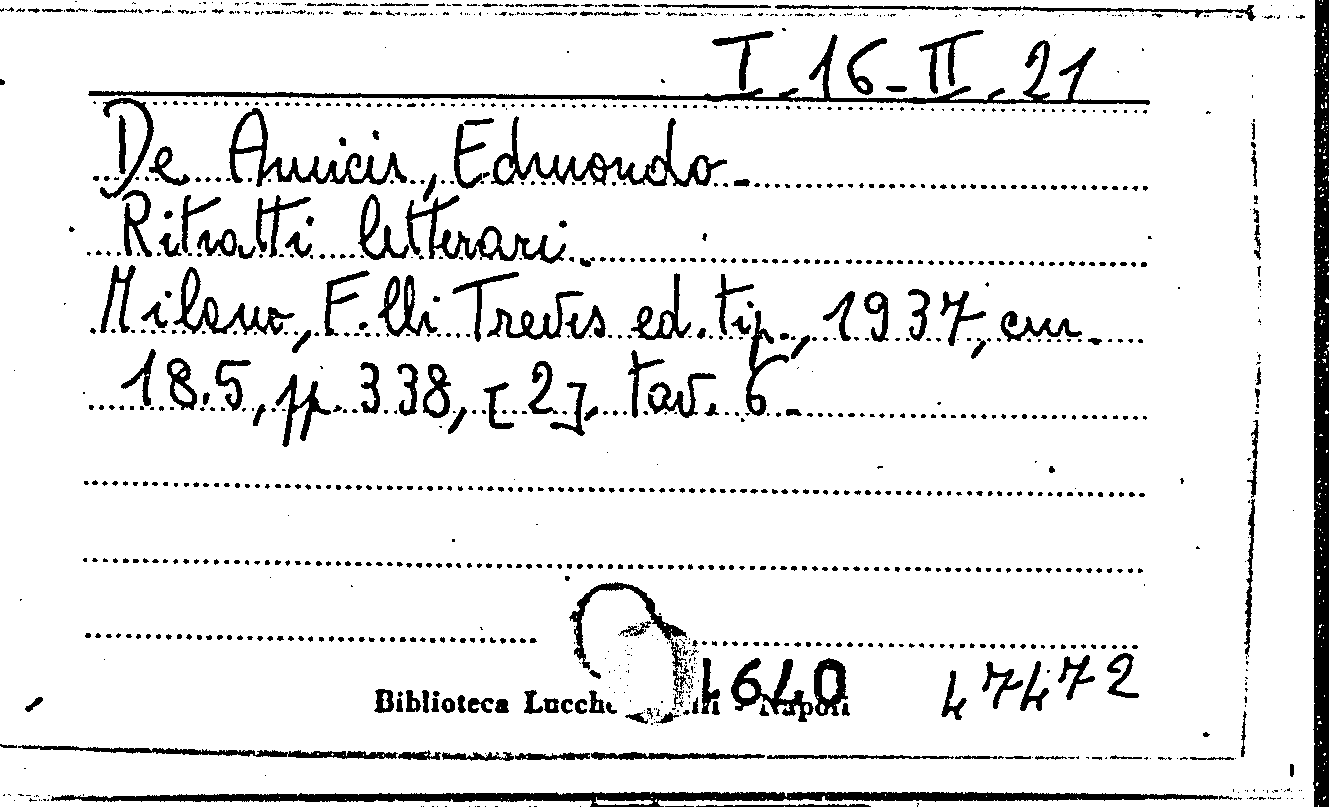 I.16-II.21
De Amicis, Edmondo.
Ritratti letterari.
Milano, F.lli Treves ed. tip., 1937, cm.
18.5, pp. 338, [2], tav. 6.
1640 47472
Biblioteca Lucche Napoli